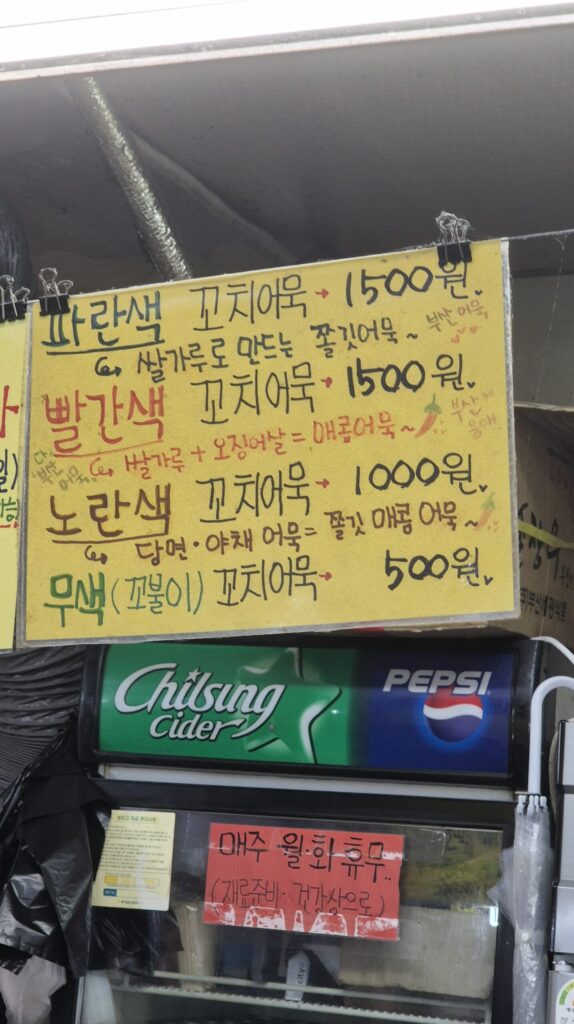 파란색 꼬치어묵→ 1500원.
↪ 쌀가루로 만드는 쫄깃어묵~ 부산 어묵
빨간색 꼬치어묵→ 1500원.
↪ 쌀가루 + 오징어살 = 매콤어묵~ 부산
노란색 꼬치어묵→ 1000원.
↪ 당면·야채 어묵= 쫄깃 매콤 어묵~
무색 (꼬불이) 꼬치어묵→ 500원.
Chilsung
Cider
PEPSI
매주 월·화 휴무..
(재료준비· 건강상으로)